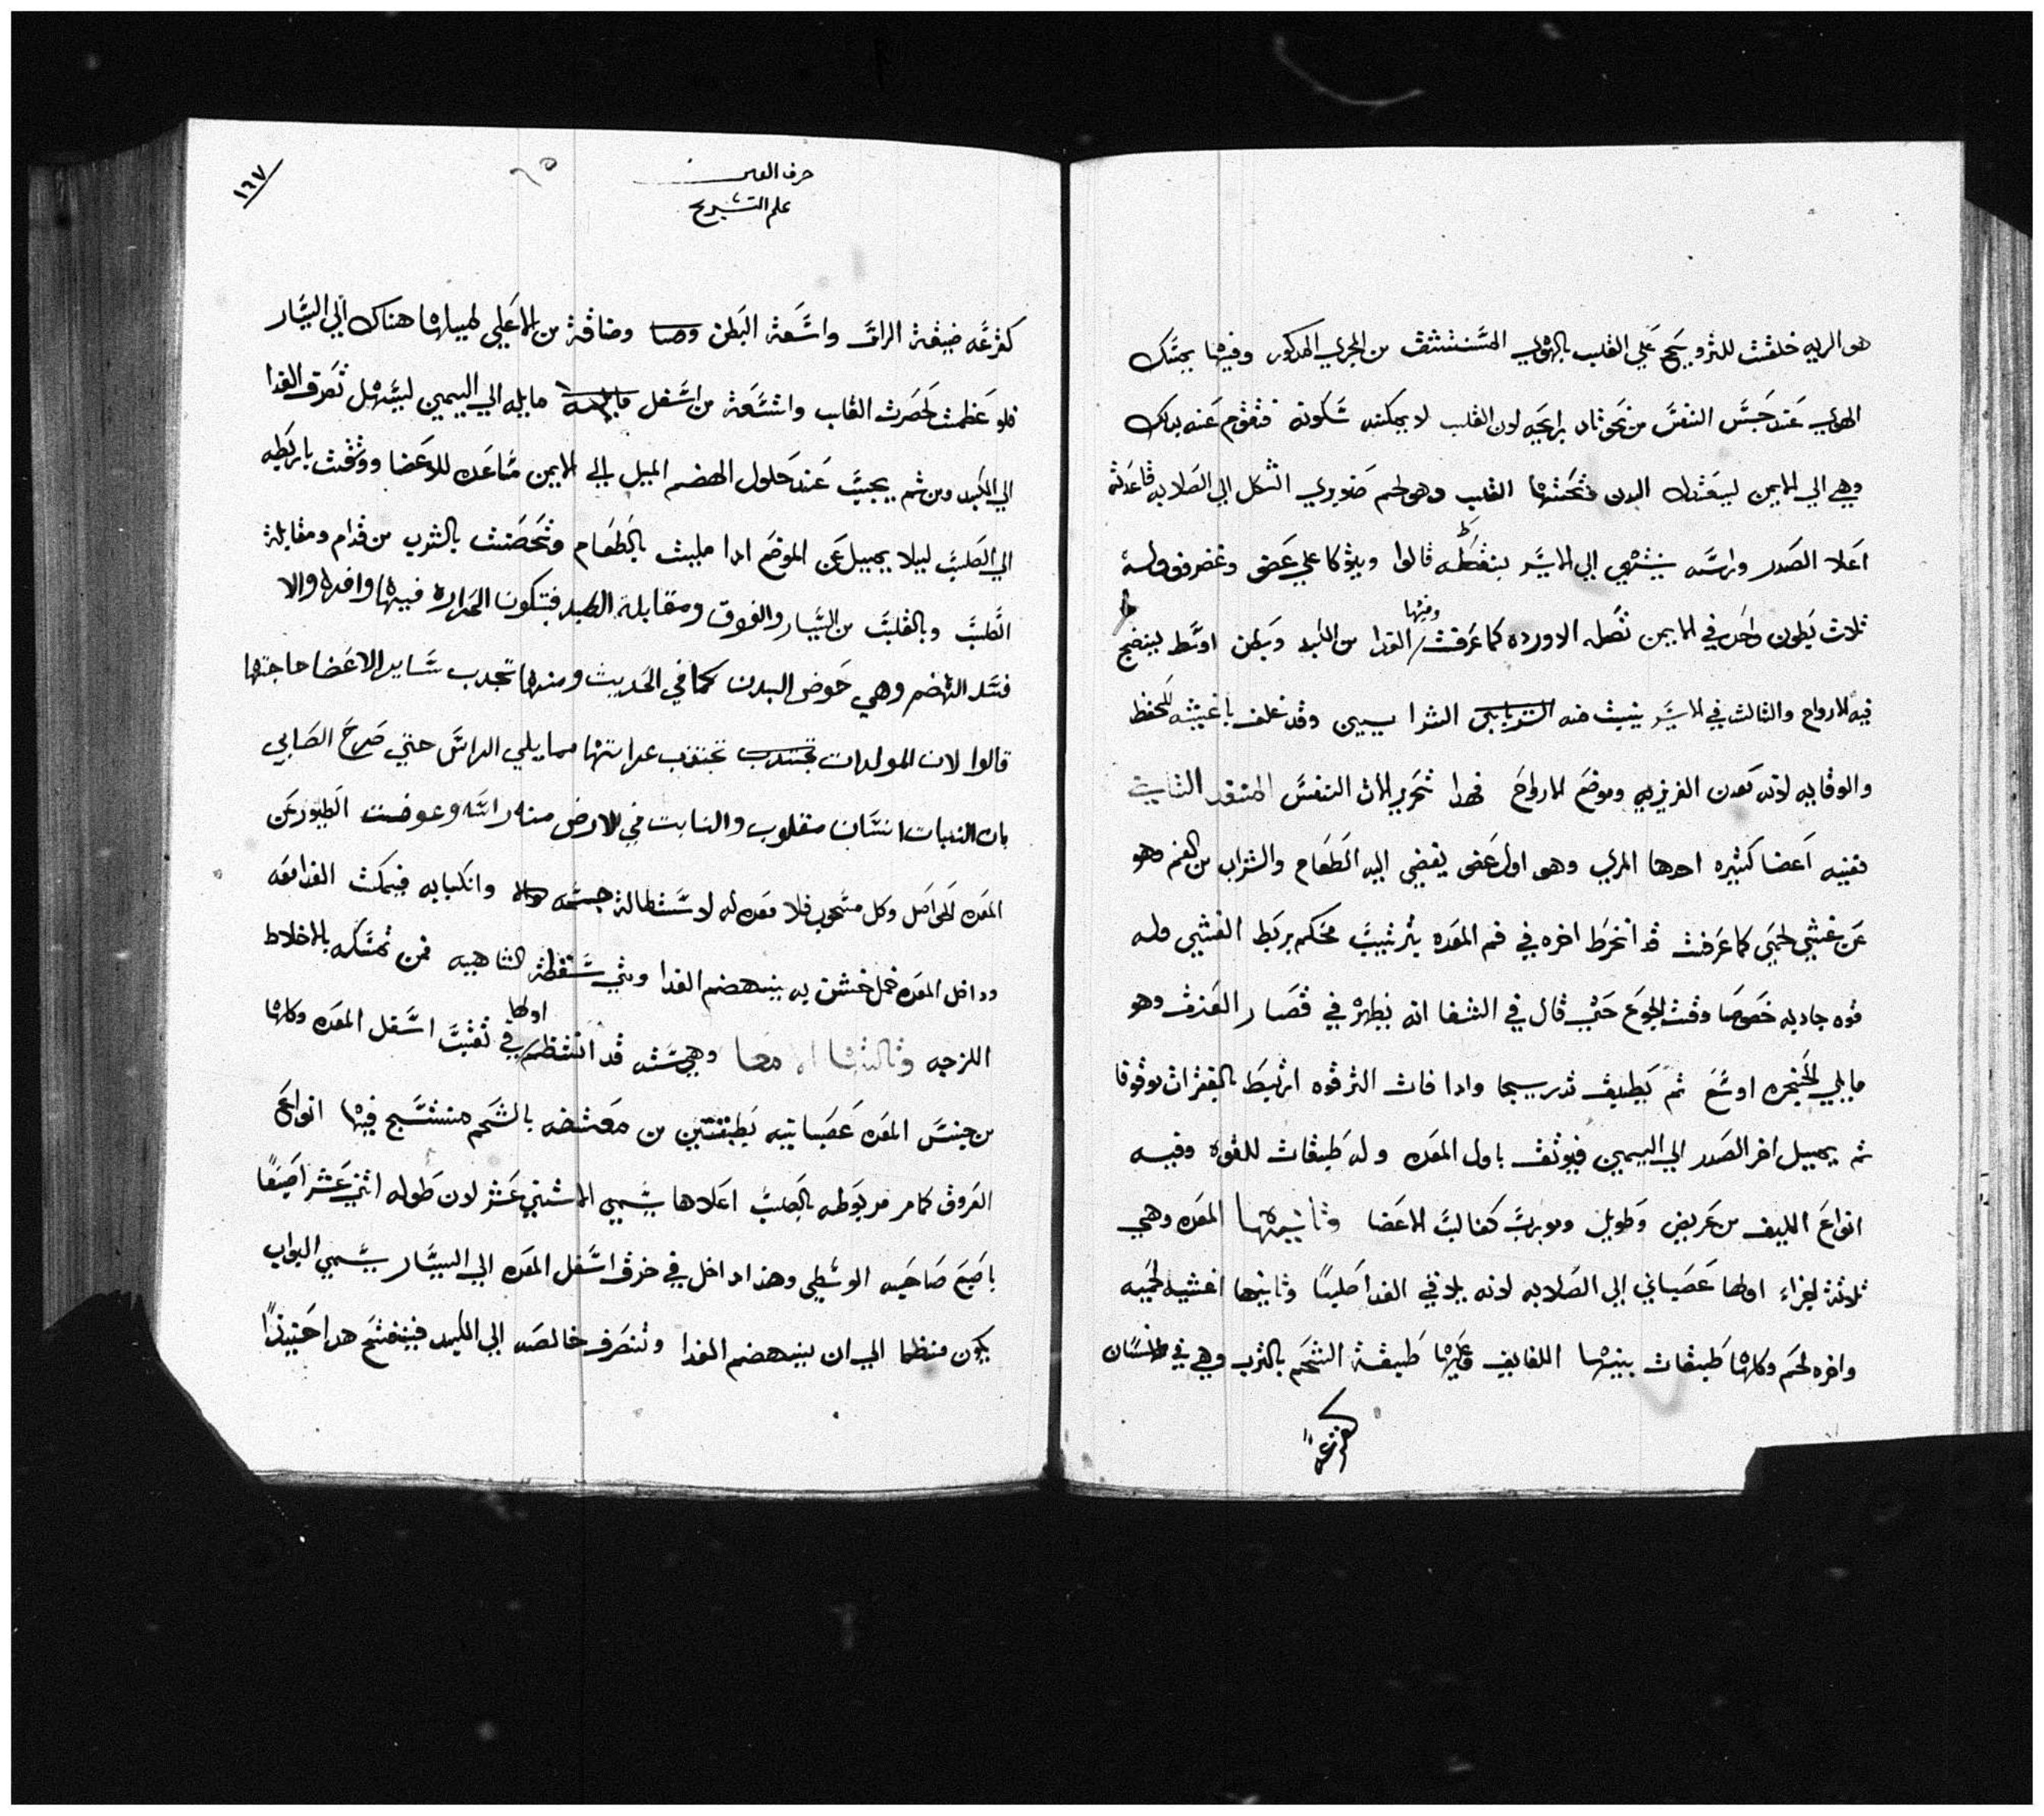 هو الريه خلقت للترويح علي القلب بالهوي المستنشق من المجري المدكور وفيها يمسك
الهوي عند حبس النفس من نحو نار براعيه لان القلب لا يمكنه سكونه فتقوم عنه بدلك
وهي الي الايمن ليعتدل البدن وتحتها القلب وهو لحم صنوبري الشكل الي الصلابه قاعدته
اعلا الصدر وراسه ينتهي الي الايسر بنقطه قالوا ويتوكا علي عضو وغضروف وله
ثلاث بطون واحد في الايمن تصله الاورده كما عرفت وفيها الغدا من الكبد وبطن اوسط لينضج
فيه الارواح والثالث في الايسر ينبت منه الشرايين وقد غلف باغشيه للحفظ
والوقايه لانه معدن الغريزيه وموضع الارواح فهدا تحرير الات النفس المنقد الثاني
ففيه اعضا كثيره احدها المري وهو اول عضو يفضي اليه الطعام والشراب من الفم وهو
عن غشي لحمي كما عرفت قد انخرط اخره في فم المعده بترتيب محكم بربط الغشي وله
قوه جادبه خصوصا وقت الجوع حتي قال في الشفا انه يظهر في قصار العنق وهو
مايلي الحنجره اوسع ثم يطيف تدريجا وادا فات الترقوه ارتبط بالفقرات موثوقا
ثم يميل اخر الصدر الي اليمين فيوثق باول المعده وله طبقات للقوه وفيه
انواع الليف من عريض وطويل ومورب كغالب الاعضا وثانيها المعده وهي
ثلاثة اجزاء اولها عصباني الي الصلابه لانه يلاقي الغدا صلبا وثانيها اغشيه لحميه
واخره لحم وكلها طبقات بينها اللفايف وعليها طبقة الشحم بالثرب وهي في الانسان
كقرعة
حرف العين
علم التشريح
١٦٧
كقرعه ضيقة الراس واسعة البطن وضاقة من الاعلي لميلها هناك الي اليسار
فلو عظمت لحصرت القلب واتسعة من اسفل مايله الي اليمين ليسهل تصرف الغدا
الي الكبد ومن ثم يجب عند حلول الهضم الميل الي الايمن مساعده للاعضا ووثقت باربطه
الي الصلب ليلا يميل عن الموضع ادا مليت بالطعام وتحصنت بالثرب من قدام ومقابلة
الصلب وبالقلب من اليسار والفوق ومقابلة الكبد فتكون الحراره فيها وافره والا
فسد الهضم وهي حوض البدن كما في الحديث ومنها تجدب ساير الاعضا حاجتها
قالوا لان المولدات تجتدب غداتها مما يلي الراس حتي صرح الصابي
بان النبات انسان مقلوب والنابت في الارض منه راسه وعوضت الطيور عن
المعده الحواصل وكل مستحوي فلا معده له لاستطالة جسمه وانكبابه فيمكث الغدا معه
وداخل المعده خمل خشن به ينهضم الغدا وتي سقطة الشاهيه فمن تمسكه بالاخلاط
اللزجه وثالثها الامعا وهي سته قد انتظم اولها في ثقب اسفل المعده وكلها
من جنس المعده عصبانيه بطبقتين من معتضه بالشحم منتسج فيها انواع
العروق كما مر مربوطه بالصلب اعلاها يسمي الاثني عشر لان طوله اثني عشر اصبعا
باصبع صاحبه الوسطي وهذا داخل في خرق اسفل المعده الي اليسار يسمي البواب
يكون منظما الي ان ينهضم الغدا وتنصرف خالصه الي الكبد فينفتح هدا حنيندا